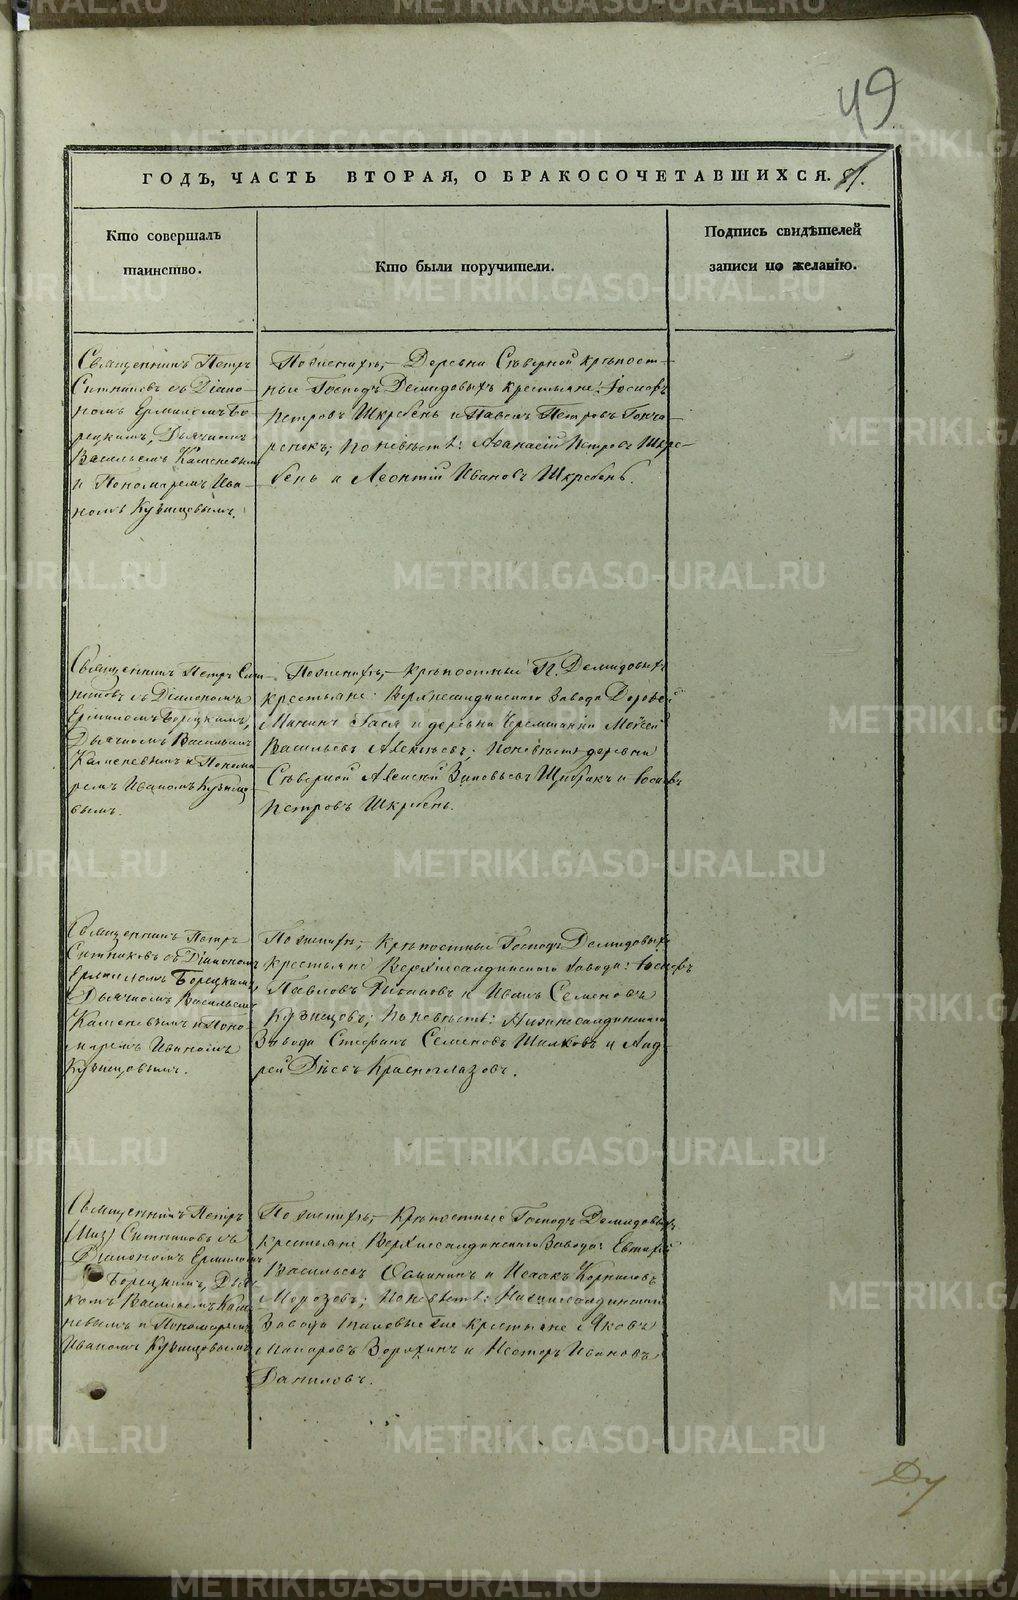 49
ГОДЪ, ЧАСТЬ ВТОРАЯ, О БРАКОСОЧЕТАВШИХСЯ.
Кто совершалъ
таинство.
Кто были поручители.
Подпись свидѣтелей
записи по желанію.
Священникъ Петръ
Ситниковъ съ Діако-
номъ Ермиломъ Бо-
рецкимъ, Дьячкомъ
Васильемъ Каменевымъ
и Пономаремъ Ива-
номъ Кузнецовымъ.
По женихѣ,– Деревни Сѣверной крѣпост-
ные Господъ Демидовыхъ крестьяне: Іосифъ
Петровъ Шкребень и Павелъ Петровъ Гонча-
ренокъ; по невѣстѣ: Аѳанасій Петровъ Шкре-
бень и Леонтій Ивановъ Шкребень.
Священникъ Петръ Сит-
никовъ съ Діакономъ
Ермиломъ Борецкимъ,
Дьячкомъ Васильемъ
Каменевымъ и Понома-
ремъ Иваномъ Кузнецо-
вымъ.
По женихѣ,– крѣпостные Г. Демидовыхъ
крестьяне: Верхнесалдинскаго Завода Дорофей
и деревни Черемшанки Моѵсей
Васильевъ Алексѣевъ; по невѣстѣ деревни
Сѣверной Алексѣй Зиновьевъ и Іосифъ
Петровъ Шкребень.
Священникъ Петръ
Ситниковъ съ Діакономъ
Ермиломъ Борецкимъ,
Дьячкомъ Васильемъ
Каменевымъ и Поно-
маремъ Иваномъ
Кузнецовымъ.
По женихѣ,– Крѣпостные Господъ Демидовыхъ
крестьяне Верхнесалдинскаго Завода: Іосифъ
Павловъ и Иванъ Семеновъ
Кузнецовъ; по невѣстѣ: Нижнесалдинскаго
Завода Стефанъ Семеновъ и Анд-
рей Краснглазовъ.
Священникъ Петръ
Ситниковъ съ
Діакономъ Ермиломъ
Борецкимъ, Дьяч-
комъ Васильемъ Каме-
невымъ и Пономаремъ
Иваномъ Кузнецовымъ
По женихѣ,– Крѣпостные Господъ Демидовыхъ
крестьяне Верхнесалдинскаго Завода: Евтихій
Васильевъ и Исаакъ Корниловъ
Морозовъ; по невѣстѣ: Нижнесалдинскаго
Завода таковые же крестьяне Яковъ
Макаровъ Зорихинъ и Несторъ Ивановъ
Даниловъ.
METRIKI.GASO-URAL.RU